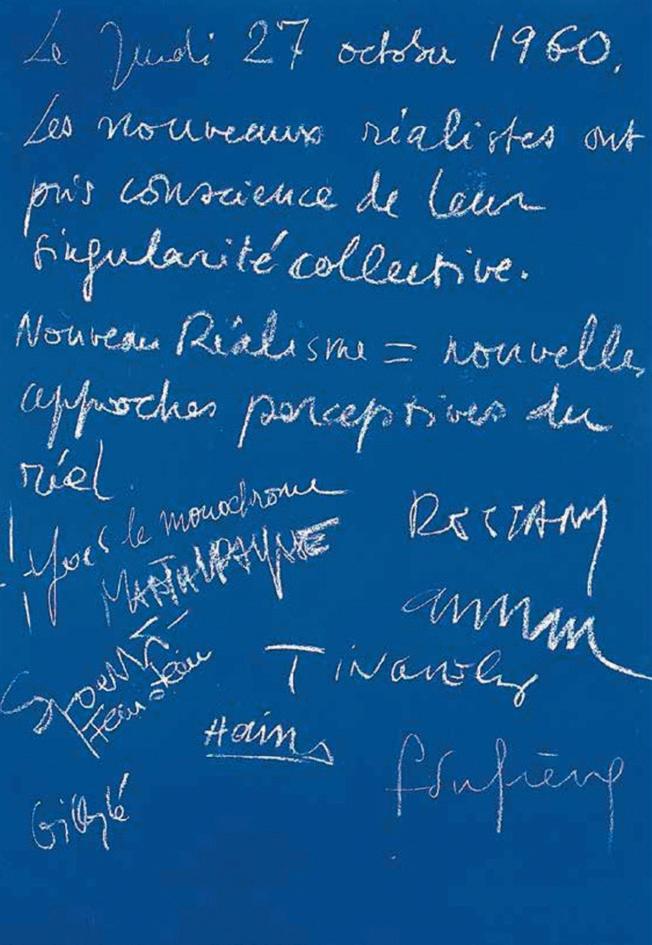 Le Jeudi 27 octobre 1960.
Les nouveaux réalistes ont
pris conscience de leur
singularité collective.
Nouveau Réalisme = nouvelles
approches perceptives du
réel.
Yves le monochrome
RESTANY
arman
TINGUELY
Hains